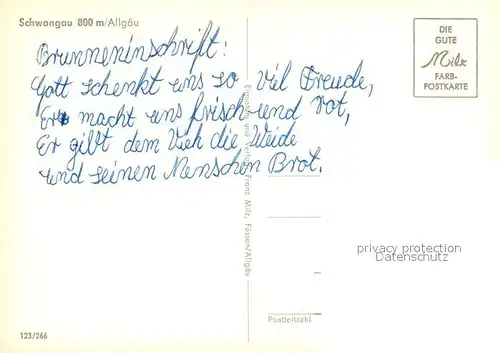 Schwangau 800 m/Allgäu
Brunneninschrift:
Gott schenkt uns so viel Freude,
Er macht uns frisch und rot,
Er gibt dem Vieh die Weide
und seinen Menschen Brot.
DIE
GUTE
Milz
FARB-
POSTKARTE
Eigentum und Verlag Franz Milz, Füssen/Allgäu
privacy protection
Datenschutz
Postleitzahl
123/266